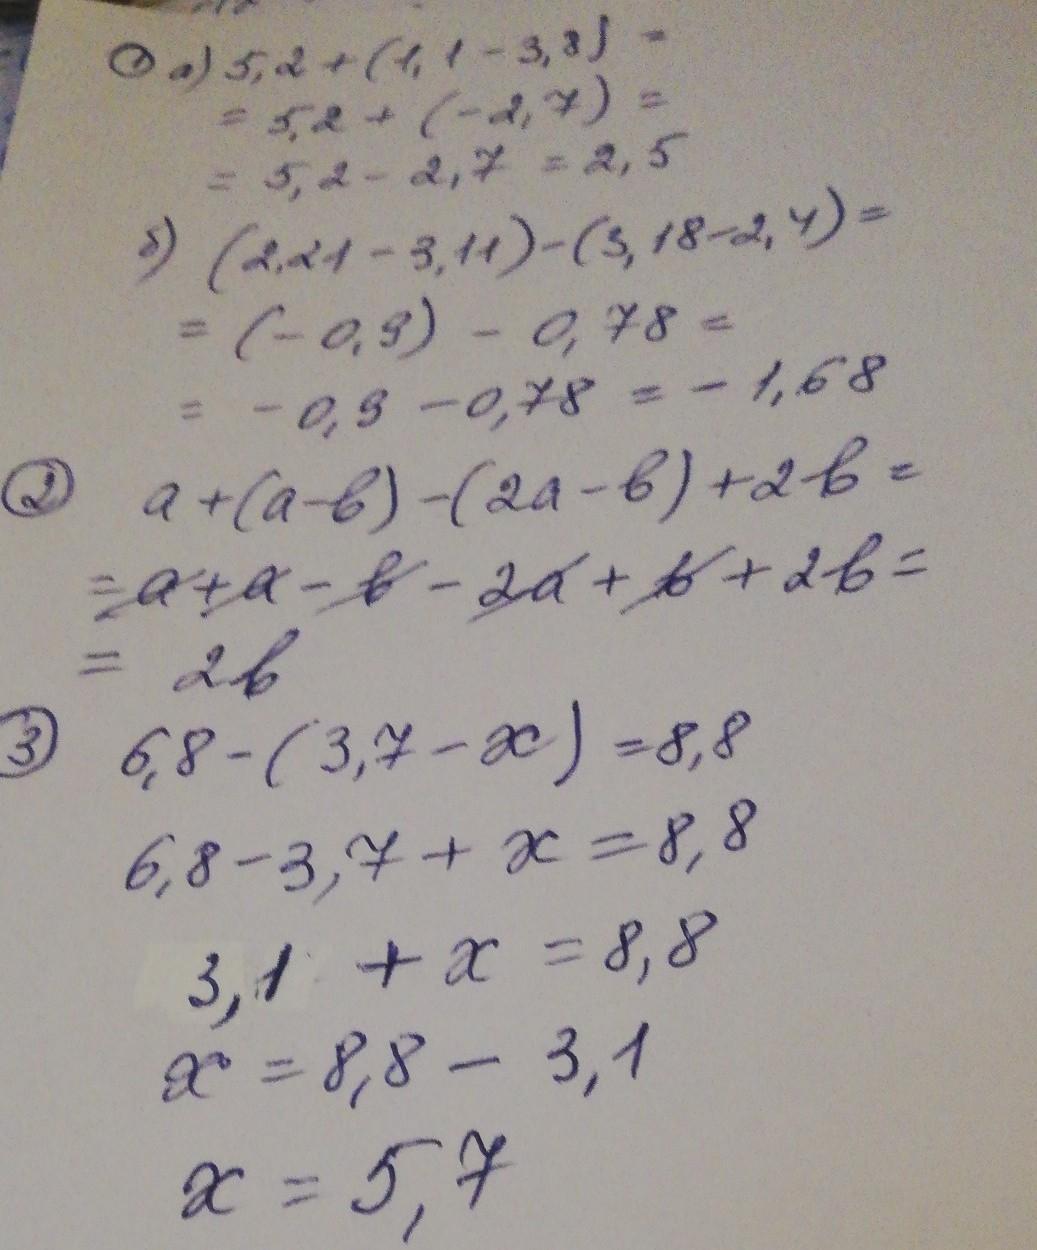 ① а) 5,2 + (1,1 - 3,8) =
= 5,2 + (-2,7) =
= 5,2 - 2,7 = 2,5
б) (2,21 - 3,11) - (3,18 - 2,4) =
= (-0,9) - 0,78 =
= -0,9 - 0,78 = -1,68
② a + (a - b) - (2a - b) + 2b =
= a + a - b - 2a + b + 2b =
= 2b
③ 6,8 - (3,7 - x) = 8,8
6,8 - 3,7 + x = 8,8
3,1 + x = 8,8
x = 8,8 - 3,1
x = 5,7